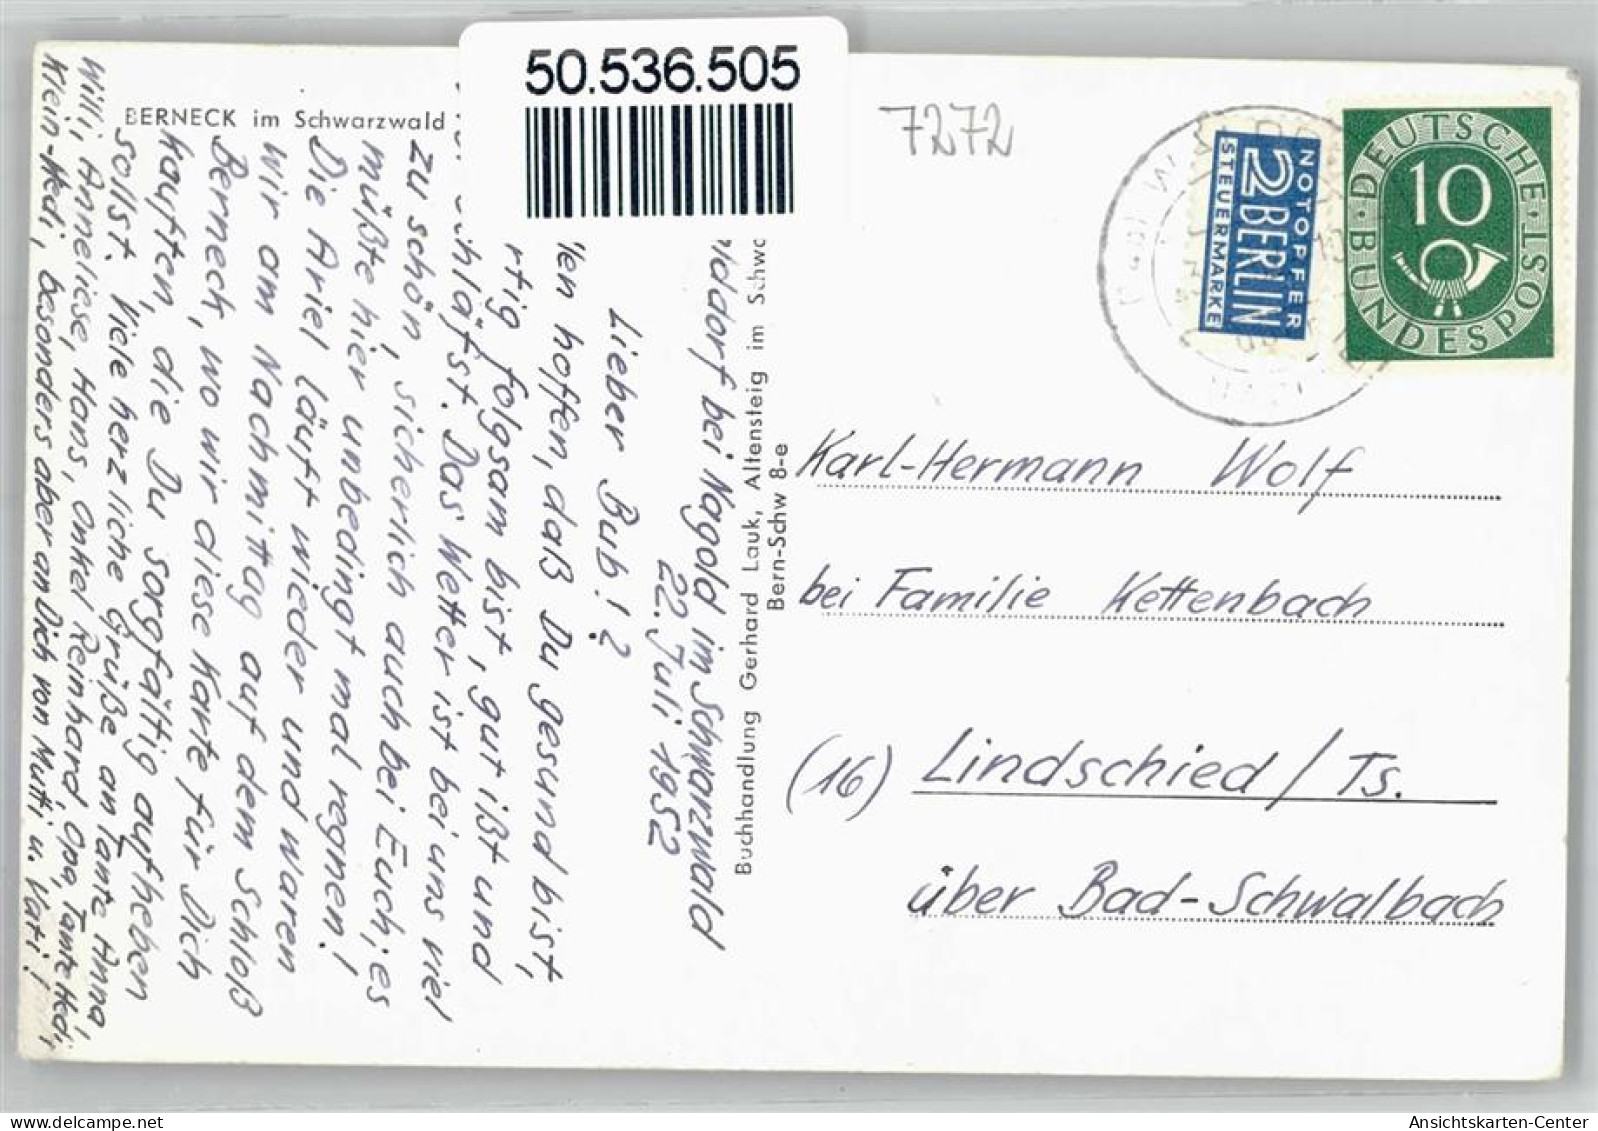 50.536.505
BERNECK im Schwarzwald
7272
NOTOPFER
2 BERLIN
STEUERMARKE
DEUTSCHE
10
BUNDESPOST
Buchhandlung Gerhard Lauk, Altensteig im Schw
Bern-Schw 8-e
Karl-Hermann Wolf
bei Familie Kettenbach
(16) Lindschied / Ts.
über Bad-Schwalbach
bei Nagold im Schwarzwald
22. Juli 1952
Lieber Bub!?
hoffen, daß Du gesund bist,
folgsam bist, gut ißt und
schläfst. Das Wetter ist bei uns viel
zu schön, sicherlich auch bei Euch; es
müßte hier unbedingt mal regnen!
Die Ariel läuft wieder und waren
wir am Nachmittag auf dem Schloß
Berneck, wo wir diese Karte für Dich
kauften, die Du sorgfältig aufheben
sollst. Viele herzliche Grüße an Tante Anna,
Willi, Anneliese, Hans, Onkel Reinhard, Opa, Tante Hedi,
Klein-Hedi, besonders aber an Dich von Mutti u. Vati!
Ansichtskarten-Center